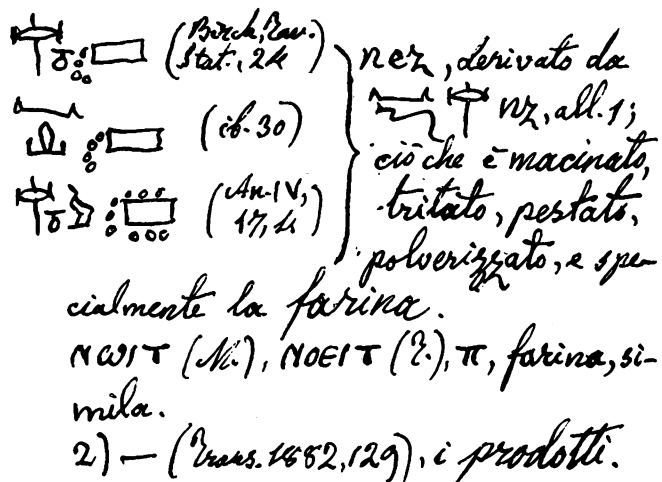 (Birch, Rav. Stat., 24)
(ib. 30)
(An. IV, 17, 4)
nez, derivato da
nz, all. 1;
ciò che è macinato,
tritato, pestato,
polverizzato, e spe-
cialmente la farina.
ⲛⲱⲓⲧ (M.), ⲛⲟⲉⲓⲧ (T.), ⲡ, farina, si-
mila.
2) — (Trans. 1882, 129), i prodotti.